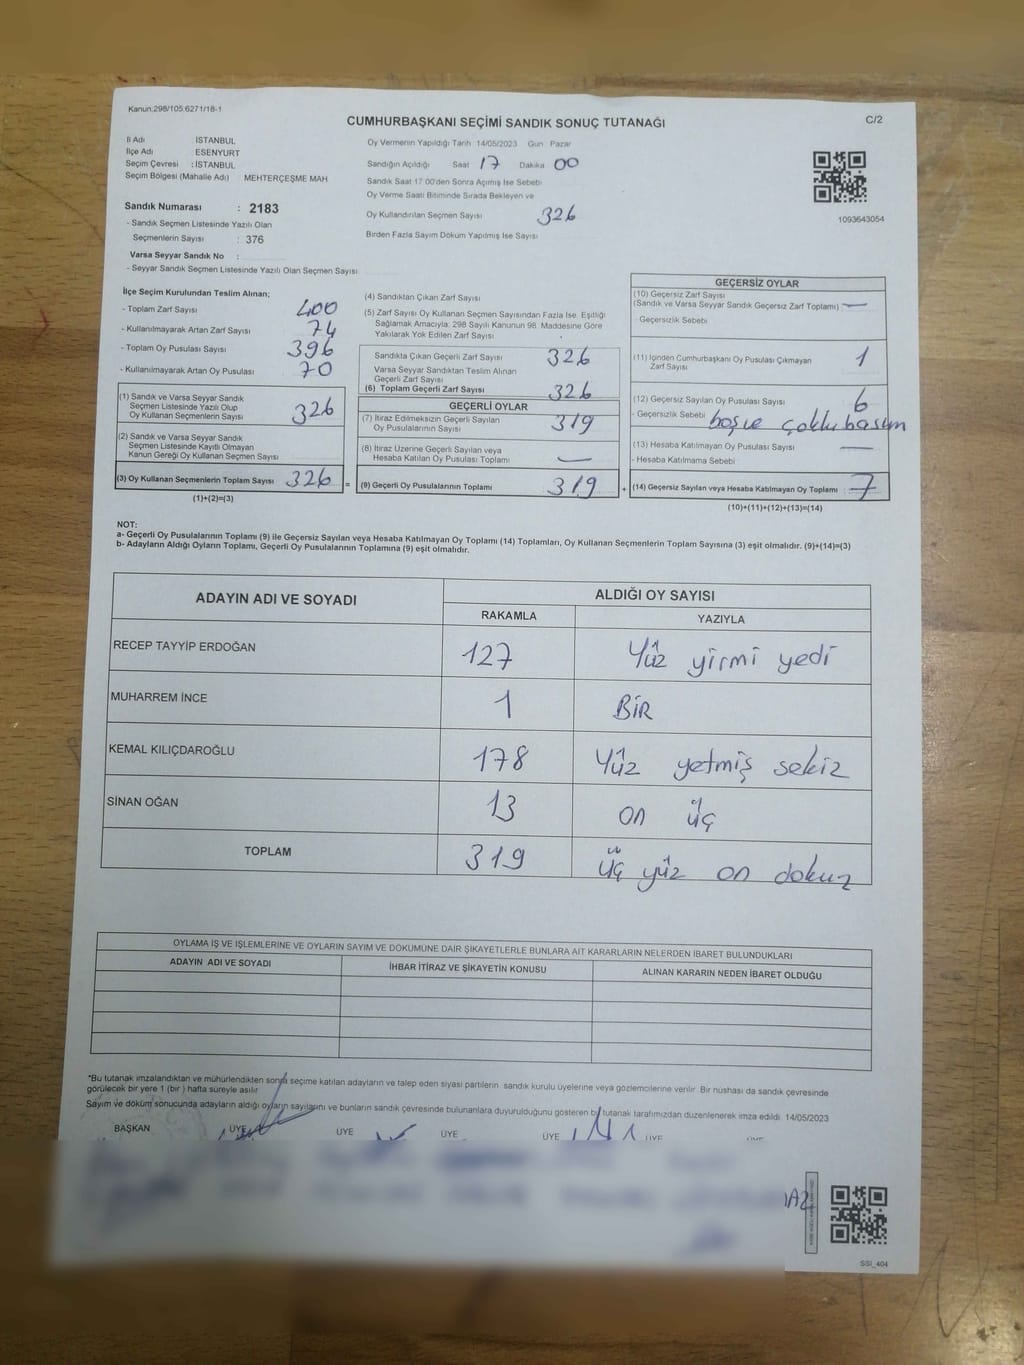 Kanun:298/105.6271/18-1
CUMHURBAŞKANI SEÇİMİ SANDIK SONUÇ TUTANAĞI
C/2
İl Adı : İSTANBUL
İlçe Adı : ESENYURT
Seçim Çevresi : İSTANBUL
Seçim Bölgesi (Mahalle Adı) MEHTERÇEŞME MAH
Sandık Numarası : 2183
- Sandık Seçmen Listesinde Yazılı Olan
Seçmenlerin Sayısı : 376
Varsa Seyyar Sandık No :
- Seyyar Sandık Seçmen Listesinde Yazılı Olan Seçmen Sayısı
Oy Vermenin Yapıldığı Tarih 14/05/2023 Gün Pazar
Sandığın Açıldığı Saat 17 Dakika 00
Sandık Saat 17 00'den Sonra Açılmış İse Sebebi
Oy Verme Saati Bitiminde Sırada Bekleyen ve
Oy Kullandırılan Seçmen Sayısı 326
Birden Fazla Sayım Döküm Yapılmış İse Sayısı
1093643054
İlçe Seçim Kurulundan Teslim Alınan;
- Toplam Zarf Sayısı 400
- Kullanılmayarak Artan Zarf Sayısı 74
- Toplam Oy Pusulası Sayısı 396
- Kullanılmayarak Artan Oy Pusulası 70
(1) Sandık ve Varsa Seyyar Sandık
Seçmen Listesinde Yazılı Olup
Oy Kullanan Seçmenlerin Sayısı 326
(2) Sandık ve Varsa Seyyar Sandık
Seçmen Listesinde Kayıtlı Olmayan
Kanun Gereği Oy Kullanan Seçmen Sayısı
(3) Oy Kullanan Seçmenlerin Toplam Sayısı 326 =
(1)+(2)=(3)
(4) Sandıktan Çıkan Zarf Sayısı
(5) Zarf Sayısı Oy Kullanan Seçmen Sayısından Fazla İse. Eşitliği
Sağlamak Amacıyla; 298 Sayılı Kanunun 98. Maddesine Göre
Yakılarak Yok Edilen Zarf Sayısı
Sandıkta Çıkan Geçerli Zarf Sayısı 326
Varsa Seyyar Sandıktan Teslim Alınan
Geçerli Zarf Sayısı
(6) Toplam Geçerli Zarf Sayısı 326
GEÇERLİ OYLAR
(7) İtiraz Edilmeksizin Geçerli Sayılan
Oy Pusulalarının Sayısı 319
(8) İtiraz Üzerine Geçerli Sayılan veya
Hesaba Katılan Oy Pusulası Toplamı —
(9) Geçerli Oy Pusulalarının Toplamı 319 +
GEÇERSİZ OYLAR
(10) Geçersiz Zarf Sayısı
(Sandık ve Varsa Seyyar Sandık Geçersiz Zarf Toplamı) —
- Geçersizlik Sebebi
(11) İçinden Cumhurbaşkanı Oy Pusulası Çıkmayan
Zarf Sayısı 1
(12) Geçersiz Sayılan Oy Pusulası Sayısı 6
- Geçersizlik Sebebi boş ve çoklu basım
(13) Hesaba Katılmayan Oy Pusulası Sayısı —
- Hesaba Katılmama Sebebi
(14) Geçersiz Sayılan veya Hesaba Katılmayan Oy Toplamı 7
(10)+(11)+(12)+(13)=(14)
NOT:
a- Geçerli Oy Pusulalarının Toplamı (9) ile Geçersiz Sayılan veya Hesaba Katılmayan Oy Toplamı (14) Toplamları, Oy Kullanan Seçmenlerin Toplam Sayısına (3) eşit olmalıdır. (9)+(14)=(3)
b- Adayların Aldığı Oyların Toplamı, Geçerli Oy Pusulalarının Toplamına (9) eşit olmalıdır.
ADAYIN ADI VE SOYADI ALDIĞI OY SAYISI
RAKAMLA YAZIYLA
RECEP TAYYİP ERDOĞAN 127 Yüz yirmi yedi
MUHARREM İNCE 1 BİR
KEMAL KILIÇDAROĞLU 178 Yüz yetmiş sekiz
SİNAN OĞAN 13 on üç
TOPLAM 319 üç yüz on dokuz
OYLAMA İŞ VE İŞLEMLERİNE VE OYLARIN SAYIM VE DÖKÜMÜNE DAİR ŞİKAYETLERLE BUNLARA AİT KARARLARIN NELERDEN İBARET BULUNDUKLARI
ADAYIN ADI VE SOYADI İHBAR İTİRAZ VE ŞİKAYETİN KONUSU ALINAN KARARIN NEDEN İBARET OLDUĞU
*Bu tutanak imzalandıktan ve mühürlendikten sonra seçime katılan adayların ve talep eden siyasi partilerin sandık kurulu üyelerine veya gözlemcilerine verilir. Bir nüshası da sandık çevresinde
görülecek bir yere 1 (bir) hafta süreyle asılır
Sayım ve döküm sonucunda adayların aldığı oyların sayılarını ve bunların sandık çevresinde bulunanlara duyurulduğunu gösteren bu tutanak tarafımızdan düzenlenerek imza edildi. 14/05/2023
BAŞKAN ÜYE ÜYE ÜYE ÜYE ÜYE
SSİ_404